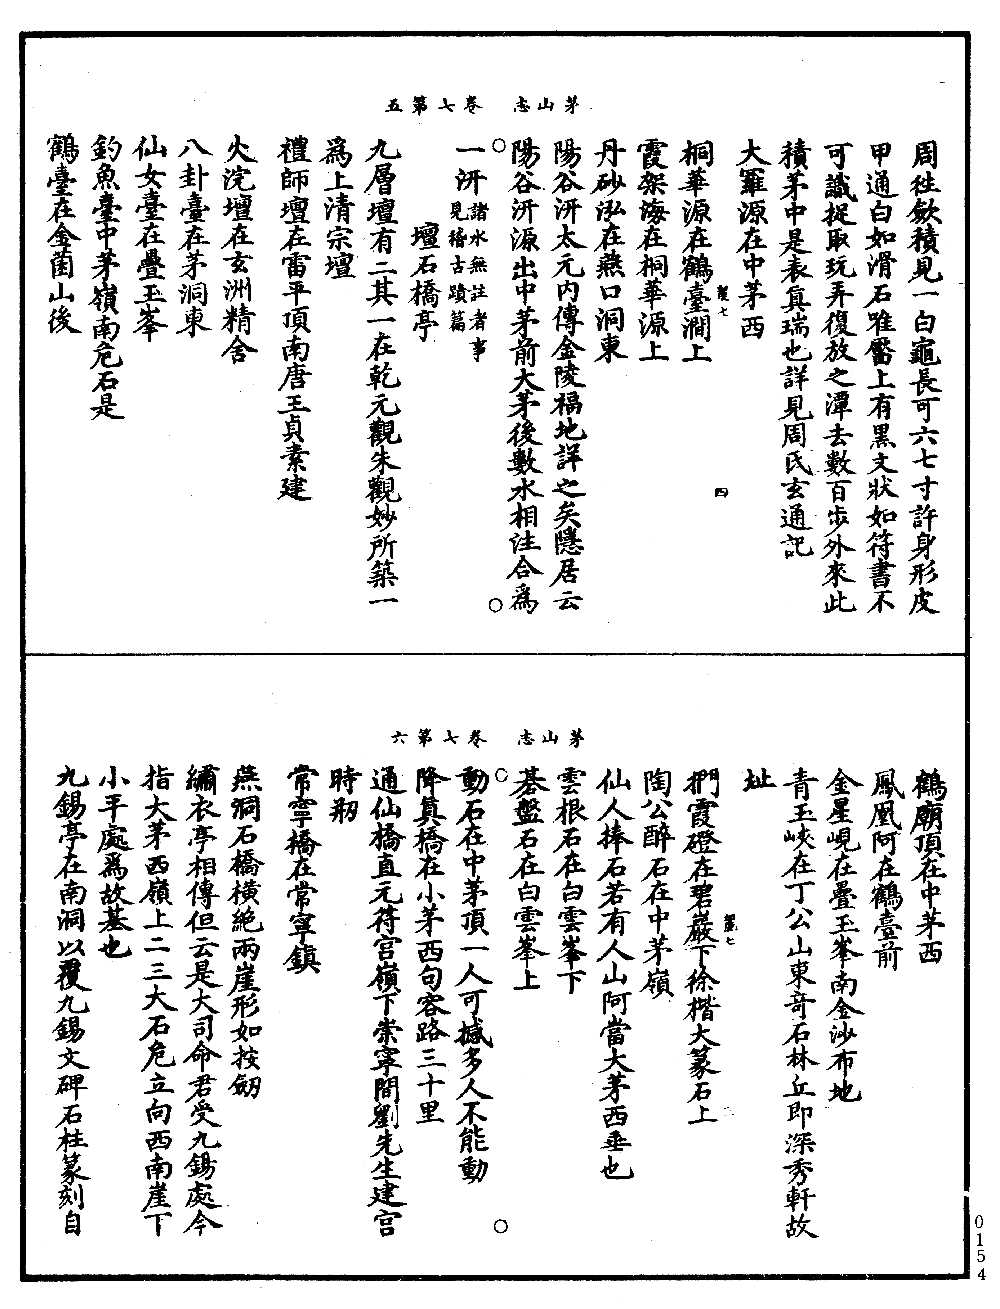 茅山志　卷七第五
周往歛積見一白龜長可六七寸許身形皮
甲通白如滑石唯靨上有黑文狀如符書不
可識捉取玩弄復放之潭去數百步外來此
積茅中是表真瑞也詳見周氏玄通記
大羅源在中茅西
四
桐華源在鶴臺澗上
霞架海在桐華源上
丹砂泓在燕口洞東
陽谷汧太元内傳金陵福地詳之矣隱居云
陽谷汧源出中茅前大茅後數水相注合爲
一汧諸水無註者事
見稽古蹟篇
壇石橋亭
九層壇有二其一在乾元觀朱觀妙所築一
爲上清宗壇
禮師壇在雷平頂南唐王貞素建
火浣壇在玄洲精舍
八卦臺在茅洞東
仙女臺在疊玉峯
釣魚臺中茅嶺南危石是
鶴臺在金菌山後
茅山志　卷七第六
鶴廟頂在中茅西
鳳凰阿在鶴臺前
金星峴在疊玉峯南金沙布地
青玉峽在丁公山東奇石林丘即深秀軒故
址
捫霞磴在碧巖下徐楷大篆石上
陶公醉石在中茅嶺
仙人捧石若有人山阿當大茅西垂也
雲根石在白雲峯下
碁盤石在白雲峯上
動石在中茅頂一人可撼多人不能動
降真橋在小茅西句容路三十里
通仙橋直元符宫嶺下崇寧間劉先生建宫
時剏
常寧橋在常寧鎮
燕洞石橋横絶兩崖形如按劒
繡衣亭相傳但云是大司命君受九錫處今
指大茅西嶺上二三大石危立向西南崖下
小平處爲故基也
九錫亭在南洞以覆九錫文碑石柱篆刻自
0154